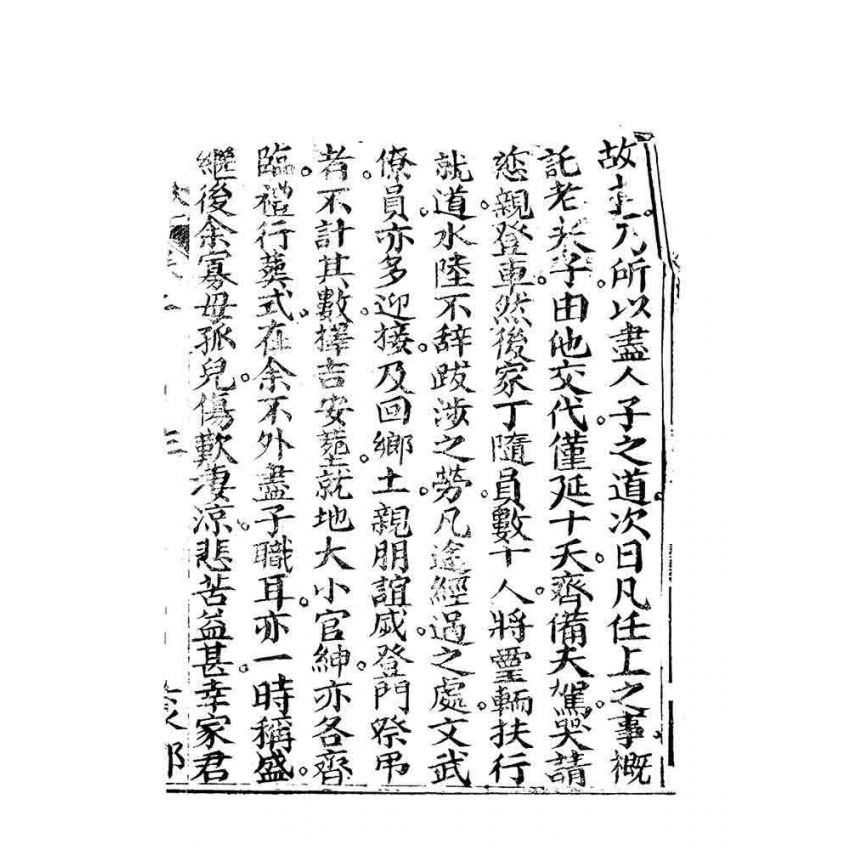 故土。乃所以盡人子之道。次日凡任上之事。概
託老夫子。由他交代。僅延十天。齊備夫駕。哭請
慈親登車。然後家丁隨員數十人。將靈輀。扶行
就道。水陸不辞跋涉之勞。凡途經過之處。文武
僚員亦多迎接。及回鄉土。親朋誼戚。登門祭吊
者。不計其數。擇吉安塟。就地大小官紳。亦各齊
臨。禮行葬式。在余不外盡子職耳。亦一時稱盛。
繼後余寡母孤兒。傷歎凄凉。悲苦益甚。幸家君